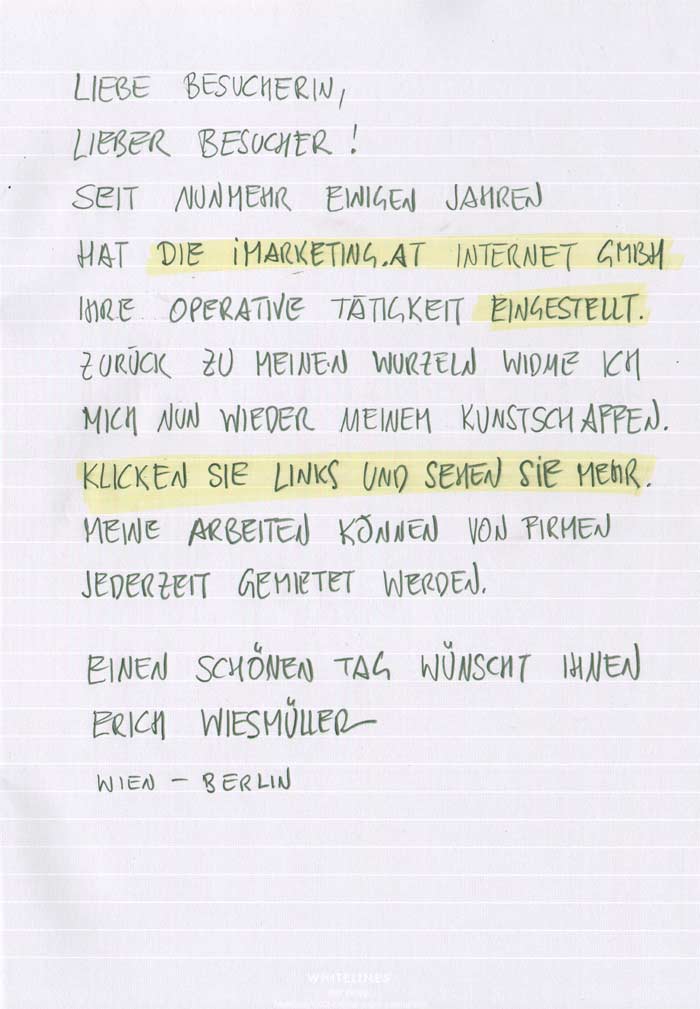 LIEBE BESUCHERIN,
LIEBER BESUCHER!
SEIT NUNMEHR EINIGEN JAHREN
HAT DIE iMARKETING.AT INTERNET GMBH
IHRE OPERATIVE TÄTIGKEIT EINGESTELLT.
ZURÜCK ZU MEINEN WURZELN WIDME ICH
MICH NUN WIEDER MEINEM KUNSTSCHAFFEN.
KLICKEN SIE LINKS UND SEHEN SIE MEHR.
MEINE ARBEITEN KÖNNEN VON FIRMEN
JEDERZEIT GEMIETET WERDEN.
EINEN SCHÖNEN TAG WÜNSCHT IHNEN
ERICH WIESMÜLLER
WIEN – BERLIN
WHITELINES